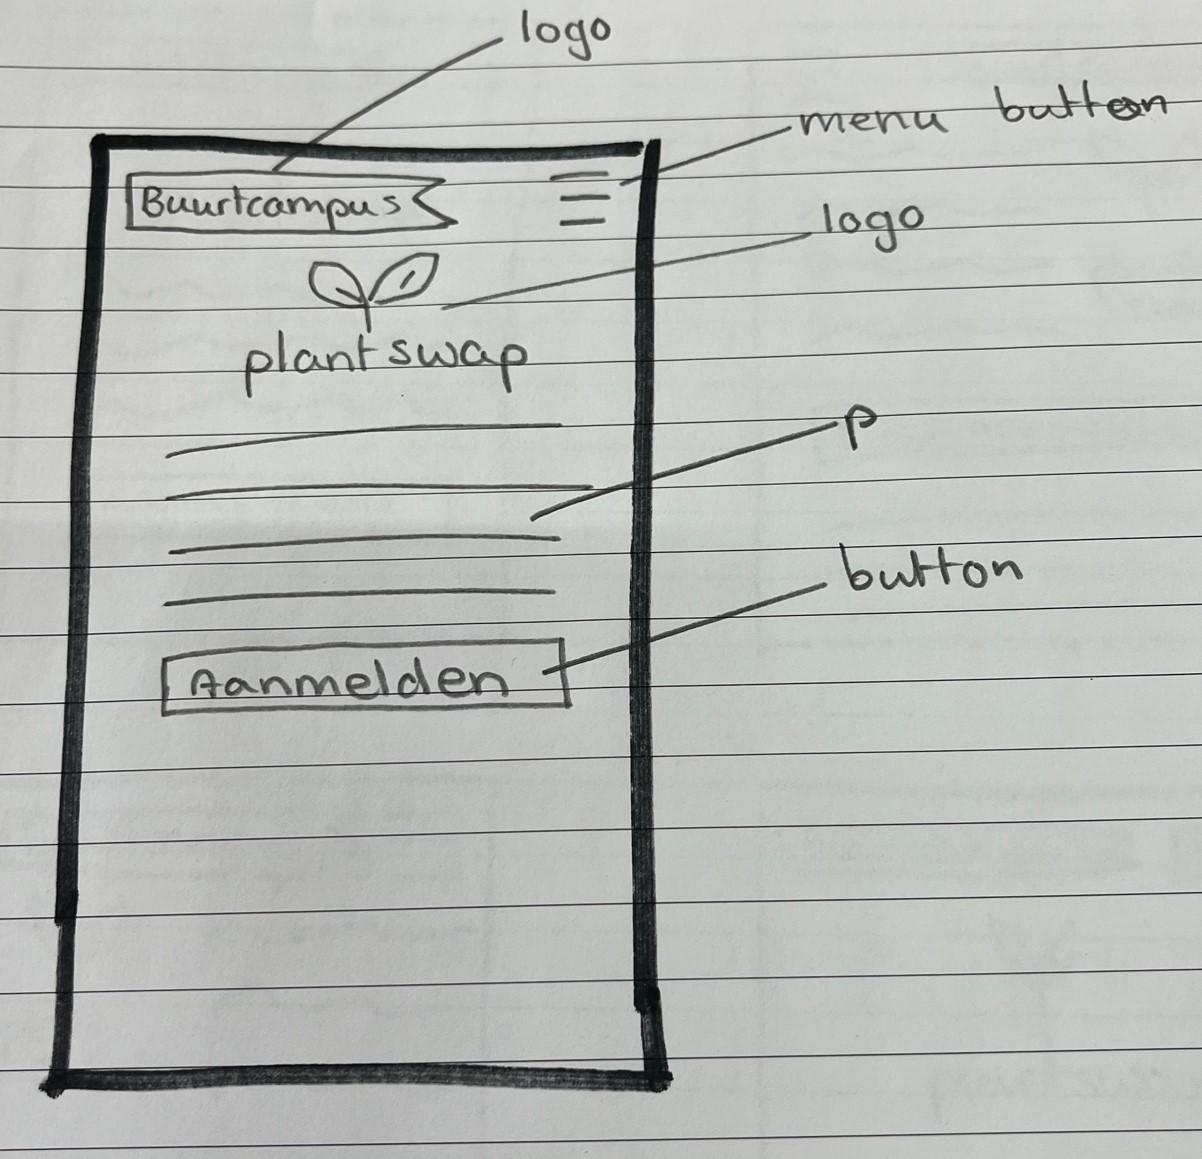 logo
menu button
Buurtcampus
logo
plantswap
p
button
Aanmelden